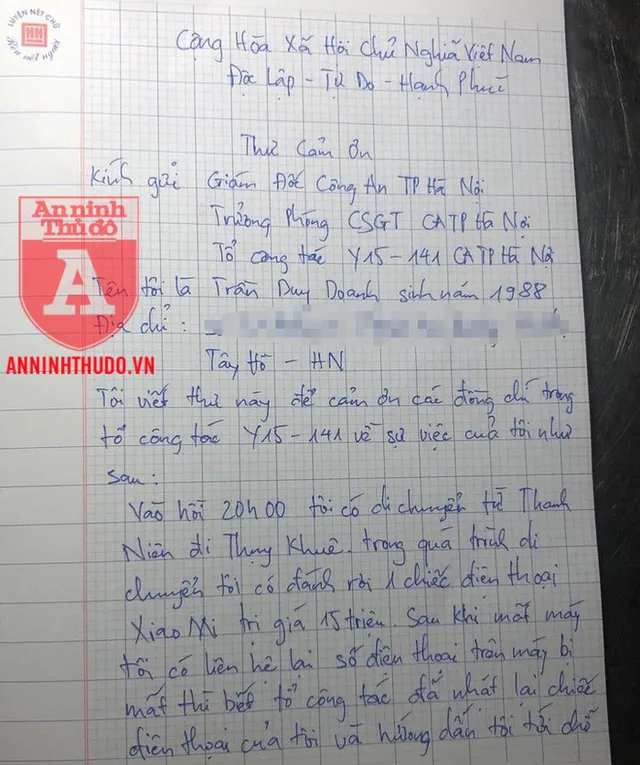 LUYỆN NÉT CHỮ
Rèn nết người
Cộng Hòa Xã Hội Chủ Nghĩa Việt Nam
Độc Lập - Tự Do - Hạnh Phúc
Thư Cảm Ơn
Kính gửi Giám Đốc Công An TP Hà Nội
Trưởng Phòng CSGT CATP Hà Nội
Tổ công tác Y15-141 CATP Hà Nội
An ninh
Thủ đô
A
ANNINHTHUDO.VN
Tên tôi là Trần Duy Doanh sinh năm 1988
Địa chỉ :
Tây Hồ - HN
Tôi viết thư này để cảm ơn các đồng chí trong
tổ công tác Y15-141 về sự việc của tôi như
sau :
Vào hồi 20h00 tôi có di chuyển từ Thanh
Niên đi Thụy Khuê. trong quá trình di
chuyển tôi có đánh rơi 1 chiếc điện thoại
XiaoMi trị giá 15 triệu. Sau khi mất máy
tôi có liên hệ lại số điện thoại trên máy bị
mất thì biết tổ công tác đã nhặt lại chiếc
điện thoại của tôi và hướng dẫn tôi tới chỗ